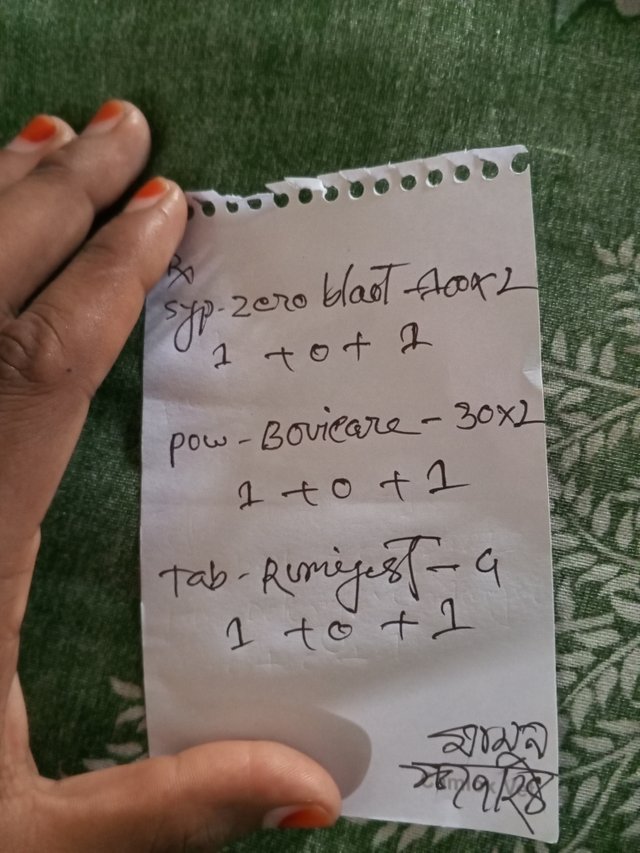 Rx
Syp-Zero blast-100x2
1 + 0 + 1
Pow-Bovicare-30x2
1 + 0 + 1
Tab-Rumigest-4
1 + 0 + 1